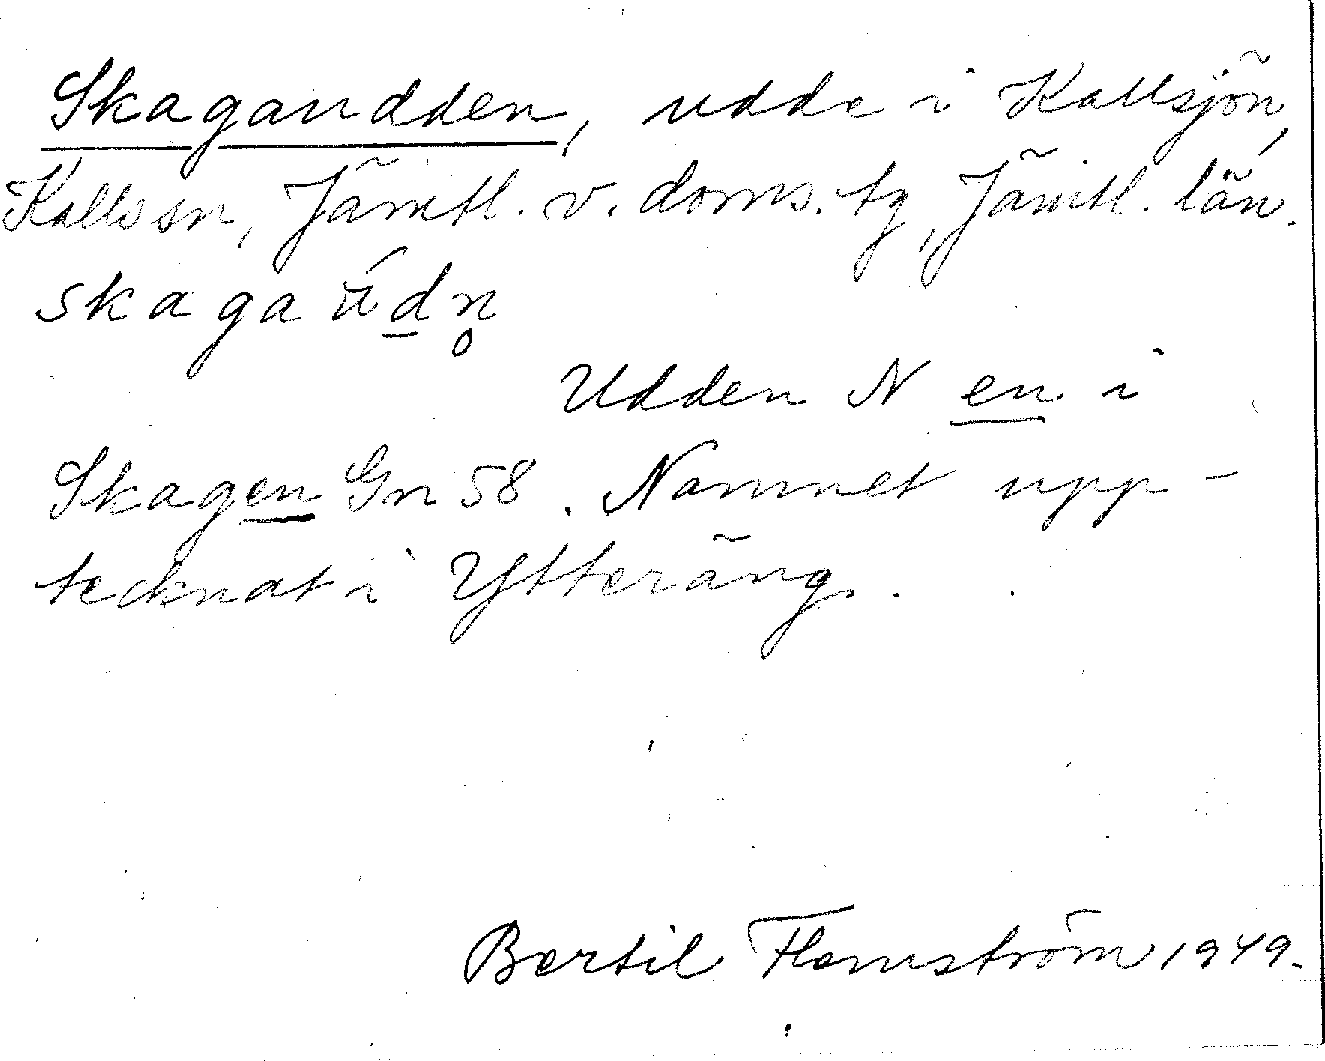 Skagaudden, udde i Kallsjön,
Kalls sn, Jämtl. v. doms. tg, Jämtl. län.
skagaúdn̥
Udden N en i
Skagen Gn 58. Namnet upp-
tecknat i Ytteräng.
Bertil Flemström 1949.